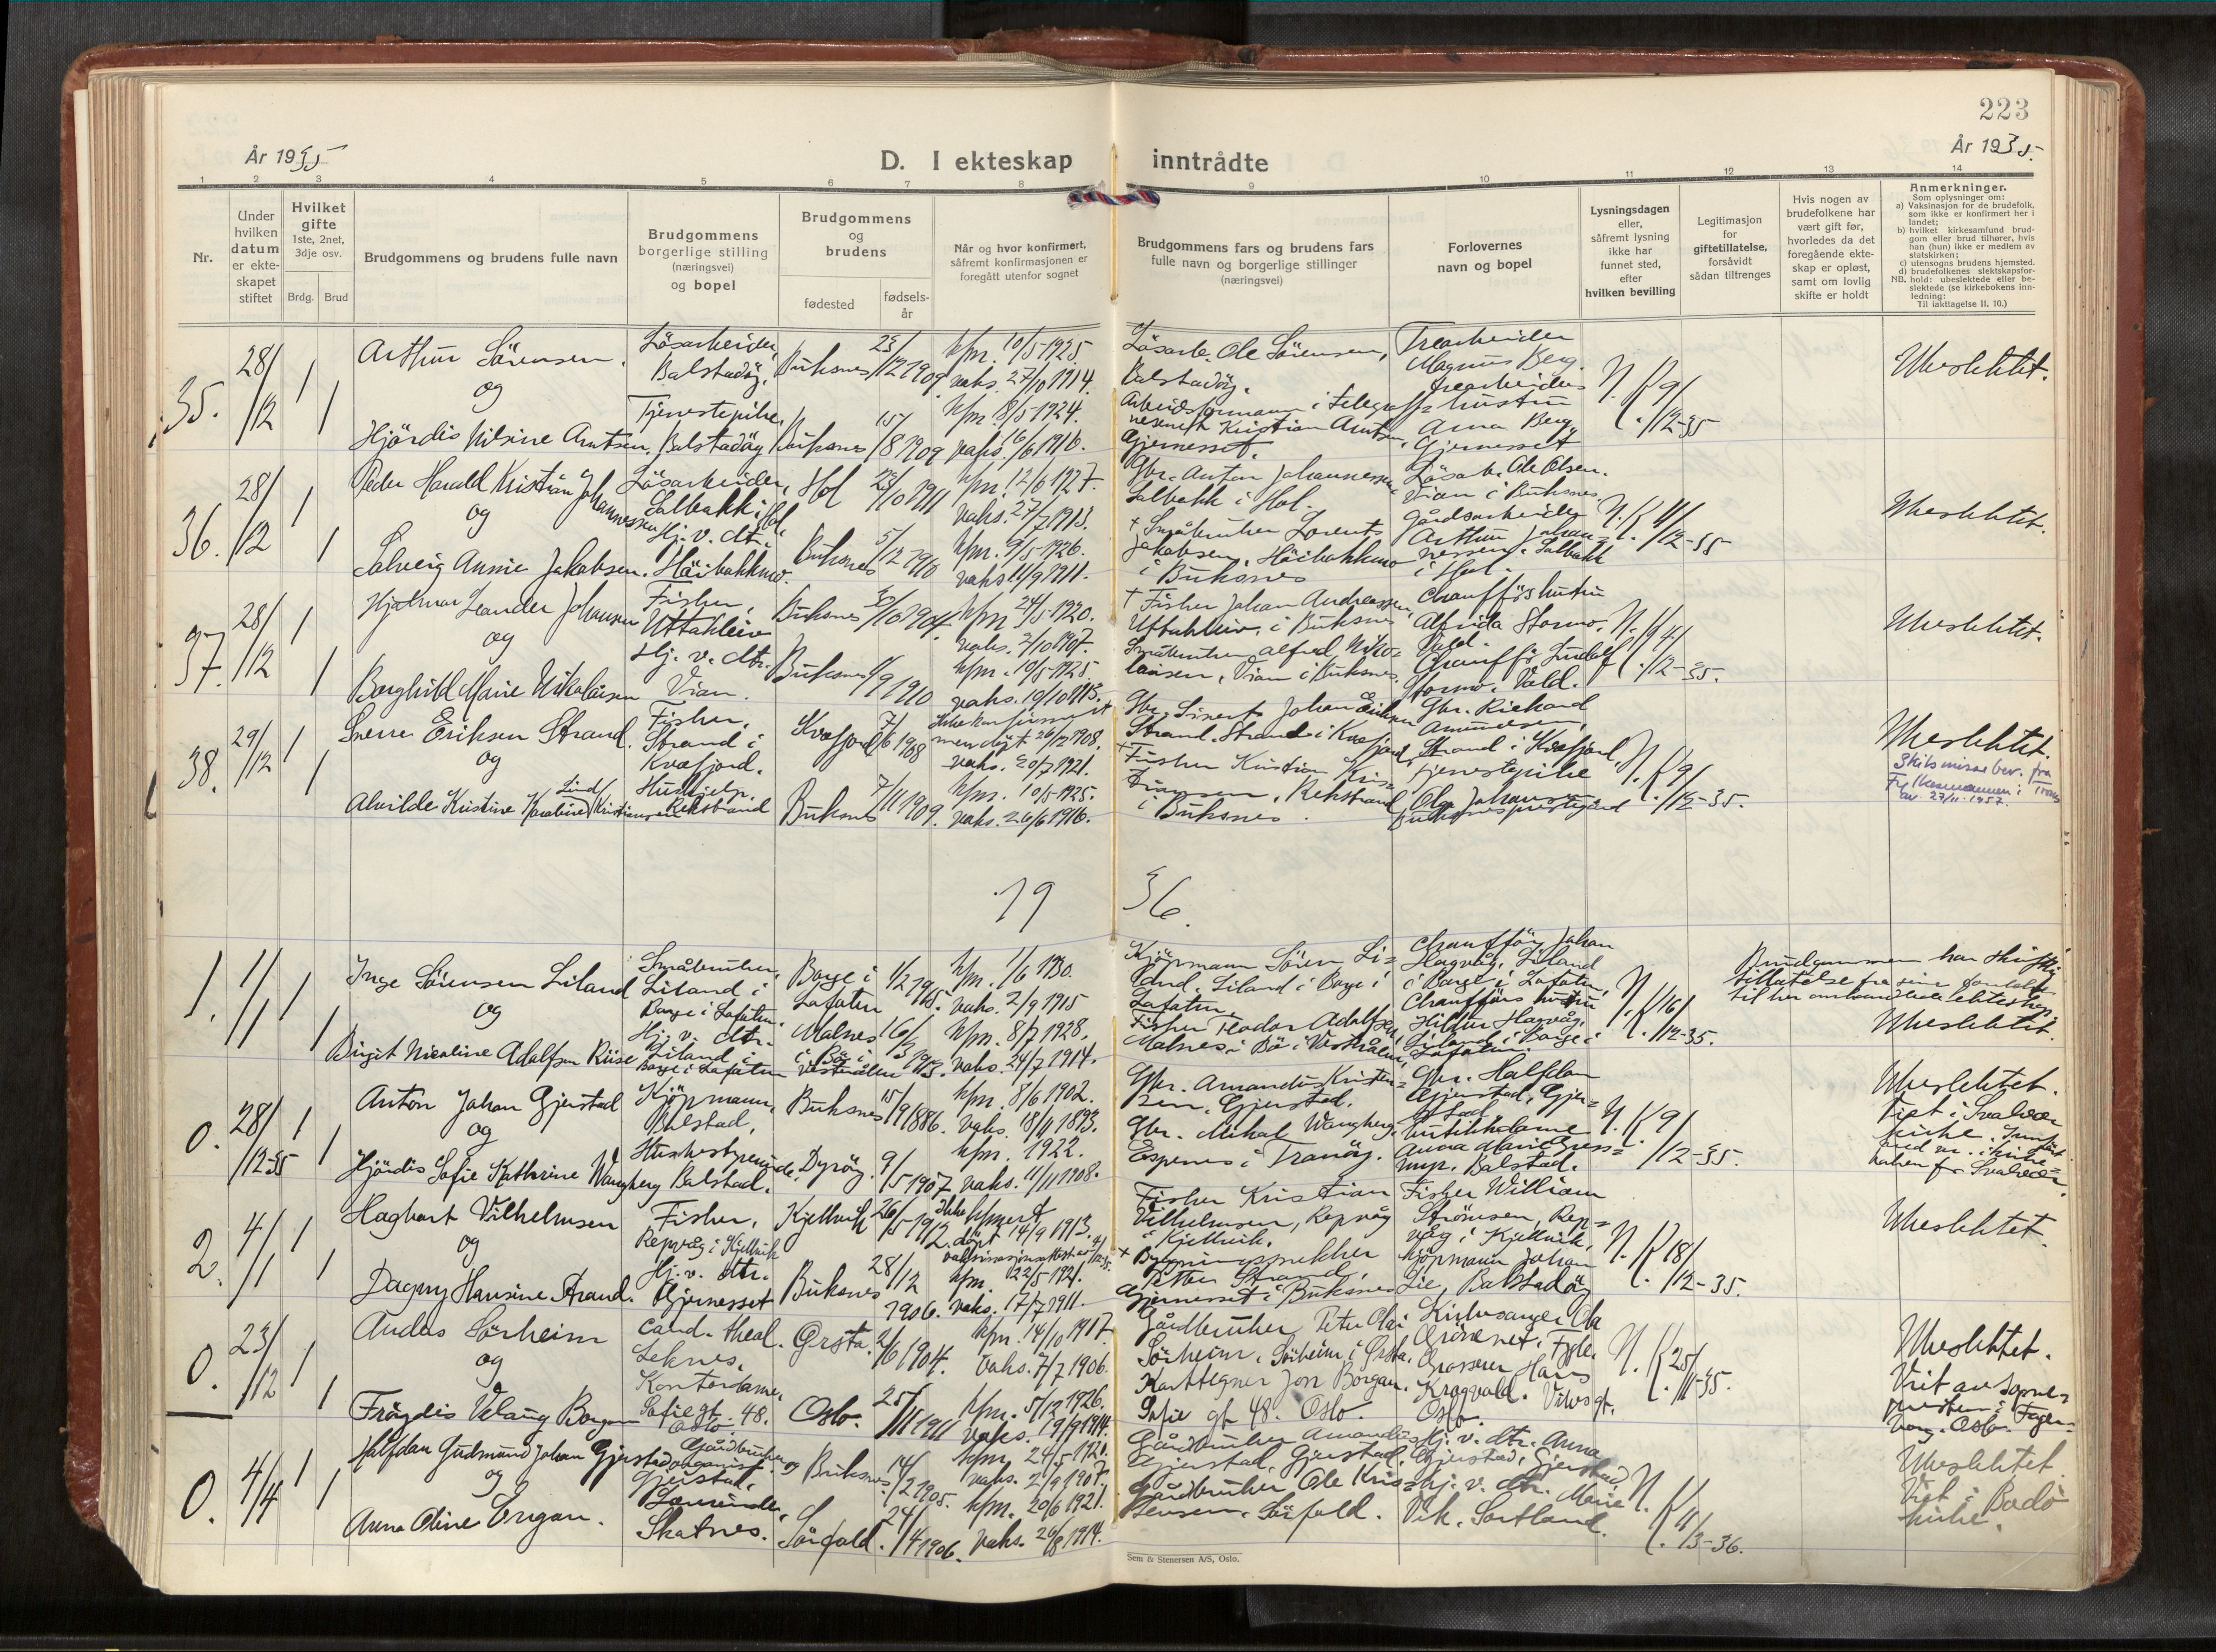 223
År 1935
År 1935.
D. I ekteskap inntrådte
1 2 3 4 5 6 7 8 9 10 11 12 13 14
Nr.
Under
hvilken
datum
er ekte-
skapet
stiftet
Hvilket
gifte
1ste, 2net,
3dje osv.
Brdg. Brud
Brudgommens og brudens fulle navn
Brudgommens
borgerlige stilling
(næringsvei)
og bopel
Brudgommens
og
brudens
fødested
fødsels-
år
Når og hvor konfirmert,
såfremt konfirmasjonen er
foregått utenfor sognet
Brudgommens fars og brudens fars
fulle navn og borgerlige stillinger
(næringsvei)
Forlovernes
navn og bopel
Lysningsdagen
eller,
såfremt lysning
ikke har
funnet sted,
efter
hvilken bevilling
Legitimasjon
for
giftetillatelse,
forsåvidt
sådan tiltrenges
Hvis nogen av
brudefolkene har
vært gift før,
hvorledes da det
foregående ekte-
skap er opløst,
samt om lovlig
skifte er holdt
Anmerkninger.
Som oplysninger om:
a) Vaksinasjon for de brudefolk,
som ikke er konfirmert her i
landet;
b) hvilket kirkesamfund brud-
gom eller brud tilhører, hvis
han (hun) ikke er medlem av
statskirken;
c) utensogns brudens hjemsted.
d) brudefolkenes slektskapsfor-
NB. hold: ubeslektede eller be-
slektede (se kirkebokens inn-
ledning:
Til iakttagelse II. 10.)
35.
28/
/12
1
1
Arthur Sörensen.
og
Hjördis Nilsine Arntsen.
Lösarbeider,
Balstadöy.
Tjenestepike,
Balstadöy
Buksnes
23/
/12 1909.
Buksnes
15/
/8 1909
kfm. 10/5 1925.
vaks. 27/10 1914.
kfm. 8/5 1924.
vaks. 16/6 1916.
Lösarb. Ole Sörensen,
Balstadöy.
Arbeidsformann i telegraf=
vesenet Kristian Arntsen,
Gjernesset.
Trearbeider
Magnus Berg.
trearbeiders
hustru
Anna Berg,
Gjernesset
N. K.
9/
/12-35
Ubeslektet.
36.
28/
/12
1
1
Peder Harald Kristian Johannessen
og
Solveig Annie Jakobsen.
Lösarbeider,
Salbakk i Hol
Hj. v. dtr.
Höibakkmo.
Hol
/10 1911
Buksnes
5/
/12 1910
kfm. 12/6 1927.
vaks. 27/7 1913.
kfm. 9/5 1926.
vaks 11/9 1911.
Gbr. Anton Johannessen
Salbakk i Hol.
+ Småbruker Lorents
Jakobsen, Höibakkmo
i Buksnes
Lösarb. Ole Olsen.
Vian i Buksnes.
Gårdsarbeider
Arthur Johan=
nessen. Salbakk
i Hol.
N. K. 4/
/12-35
Ubeslektet.
37.
28/
/12
1
1
Hjalmar Leander Johansen
og
Borghild Marie Nikolaisen
Fisker,
Uttakleiv
Hj. v. dtr.
Vian.
Buksnes
/10 1904.
Buksnes
/9 1910
kfm 24/5 1920.
vaks. 2/10 1907.
kfm. 10/5 1925.
vaks. 19/10 1913.
+ Fisker Johan Andreassen,
Uttakleiv, i Buksnes
Småbruker Alfred Niko=
laisen, Vian i Buksnes.
Chaufförshustru
Alfrida Stormo.
Vold.
Chaufför Ludolf
Stormo. Vold.
N. K. 4/
/12-35.
Ubeslektet.
38.
29/
/12
1
1
Sverre Eriksen Strand.
og
Alvilde Kristine Karoline Lind Kristiansen
Fisker,
Strand i
Kvæfjord.
Hushjelp.
Rekstrand
Kvæfjord
7/
/6 1908
Buksnes
7/
/11 1909.
Ikke konfirmert
men döpt 26/12 1908.
vaks. 20/7 1921.
kfm. 10/5 1925.
vaks. 26/6 1916.
Gbr. Sivert Johan Eriksen
Strand. Strand i Kvæfjord
+ Fisker Kristian Kris=
tiansen, Rekstrand
i Buksnes.
Gbr. Rickard
Amundsen,
Strand i Kvæfjord.
Tjenestepike
Olga Johansen
Buksnes prestegård
N. K. 9/
/12-35.
Ubeslektet.
Skilsmissebev. fra
Fylkesmannen i Troms
av. 27/11.1957.
19 36.
1.
1/
/1
1
1
Inge Sörensen Liland
og
Birgit Nicoline Adolfsen Riise
Småbruker,
Liland i
Borge i Lofoten.
Hj. v. dtr.
Liland i
Borge i Lofoten
Borge i
Lofoten
1/2 1915.
Malnes
i Bö i
Vesterålen
16/
kfm. 1/6 1930.
vaks. 2/9 1915
kfm. 8/7 1928.
vaks. 24/7 1914.
Kjöpmann Sören Li=
land. Liland i Borge i
Lofoten.
Fisker Hedor Adolfsen
Malnes i Bö i Vesterålen,
Chaufför Johan
Hagvåg, Liland
i Borge i Lofoten,
Chaufförs hustru
Hildur Hagvåg.
Liland i Borge i
Lofoten.
N. K. 16/
/12-35.
Brudgommen har skriftlig
tillatelse fra sine foreldre
til her omhandlede ekteskap.
Ubeslektet.
0.
28/
/12-35
1
1
Anton Johan Gjerstad
og
Hjördis Sofie Kathrine Wangberg
Kjöpmann,
Balstad,
Husbestyrerinde,
Balstad.
Buksnes
15/
/9 1886.
Dyröy.
9/
/5 1907
kfm. 8/6 1902.
vaks. 18/11 1893.
kfm. 1922.
vaks. 11/11 1908.
Gbr. Amandus Kristen=
sen, Gjerstad.
Gbr. Mikal Wangberg,
Espenes i Tranöy.
Gbr. Halfdan
Gjerstad, Gjer=
stad.
Butikkdame
Anna Marie
Balstad.
N. K. 9/
/12-35.
Ubeslektet.
Viet i Svolvær
kirke. Innfört
uten nr. i kirke=
boken for Svolvær.
2.
4/
/1
1
1
Hagbart Vilhelmsen
og
Dagny Hansine Strand.
Fisker,
Repvåg i Kjelvik
Hj. v. dtr.
Gjernesset
Kjelvik
26/
/5 1912.
Buksnes
28/
/12
1906.
Ikke kfmert
döpt 14/9 1913.
kfm. 22/5 1921.
vaks. 17/7 1911.
Fisker Kristian
Vilhelmsen, Repvåg
i Kjelvik.
+ Bygningssnekker
Petter Strand,
Gjernesset i Buksnes
Fisker William
Strömsen, Rep=
våg i Kjelvik,
Kjöpmann Johan
Lie, Balstadöy
N. K. 18/
/12-35.
Ubeslektet.
0.
23/
/12
1
1
Anders Sörheim
og
Fröydis Velaug Borgan
cand. theol.
Leknes,
Kontordame,
Sofiegt. 48.
Oslo
Örsta.
2/
/6 1904.
Oslo.
25/
/11 1911
kfm. 14/10 1917.
vaks. 7/7 1906.
kfm. 5/12 1926.
vaks. 19/9 1914.
Gårdbruker Peter Olai
Sörheim. Sörheim i Örsta.
Karttegner Jon Borgan.
Sofie gt 48. Oslo.
Kirkesanger Ola
Grönenet. Fygle.
Grosserer Hans
Kragvald.
Oslo.
N. K. 25/
/11-35.
Ubeslektet.
Viet av sogne=
presten i Fager=
borg. Oslo.
0.
4/
/4
1
1
Halfdan Gudmund Johan Gjerstad
og
Anna Oline Engan.
Gårdbruker og
organist.
Gjerstad,
Lærerinde,
Skatnes.
Buksnes
14/
/2 1905.
Sörfold.
24/
/4 1906.
kfm. 24/5 1920.
vaks. 2/9 1907.
kfm. 20/6 1921.
vaks. 20/8 1914.
Gårdbruker Amandus
Gjerstad, Gjerstad,
Gårdbruker Ole Kris=
tensen. Sörfold.
Hj. v. dtr. Anna
Gjerstad, Gjerstad
hj. v. dtr. Marie
Vik, Sortland.
N. K. 4/
/3-36.
Ubeslektet
Viet i Bodö
kirke.
Sem & Stenersen A/S, Oslo.